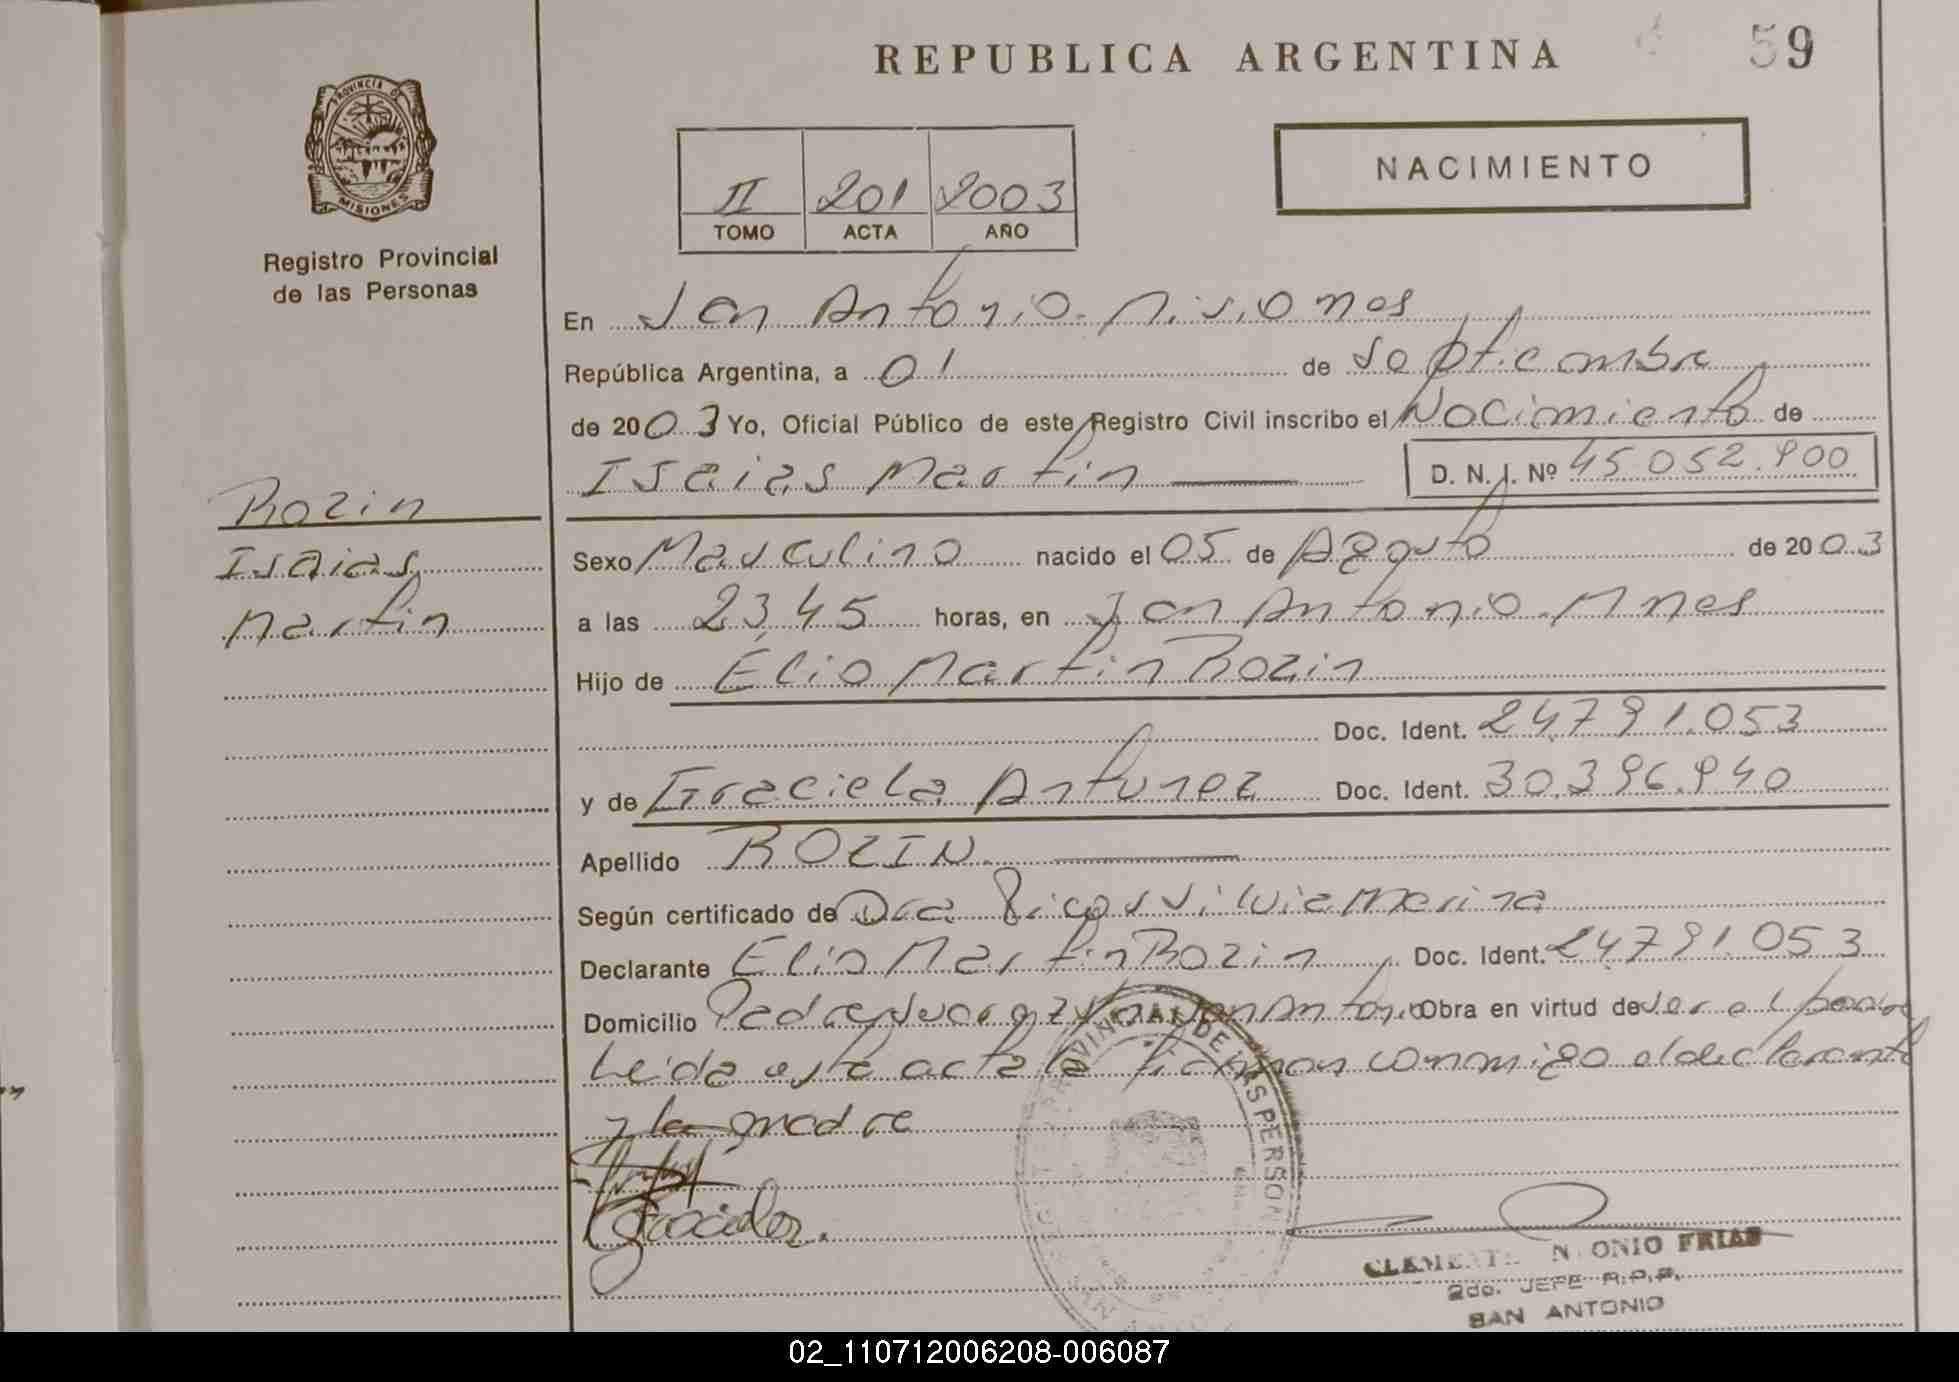 REPUBLICA ARGENTINA
59
PROVINCIA DE
MISIONES
Registro Provincial
de las Personas
II 201 2003
TOMO ACTA AÑO
NACIMIENTO
En San Antonio. Misiones
República Argentina, a 01 de Septiembre
de 2003 Yo, Oficial Público de este Registro Civil inscribo el Nacimiento de
Isaias Martin D. N. I. Nº 45.052.900
Rozin
Isaias
Martin
Sexo Masculino nacido el 05 de Agosto de 2003
a las 23,45 horas, en San Antonio. Mnes
Hijo de Elio Martin Rozin
Doc. Ident. 24.791.053
y de Graciela Antunez Doc. Ident. 30.396.940
Apellido ROZIN
Según certificado de Dra Silvia Marina
Declarante Elio Martin Rozin Doc. Ident. 24.791.053
Domicilio San Antonio Obra en virtud de ser el padre
Leida esta acta la firman conmigo el declarante
y la madre
Graciela.
PROVINCIAL DE LAS PERSONAS
ONIO FRIAS
2do. JEFE R.P.P.
SAN ANTONIO
02_110712006208-006087